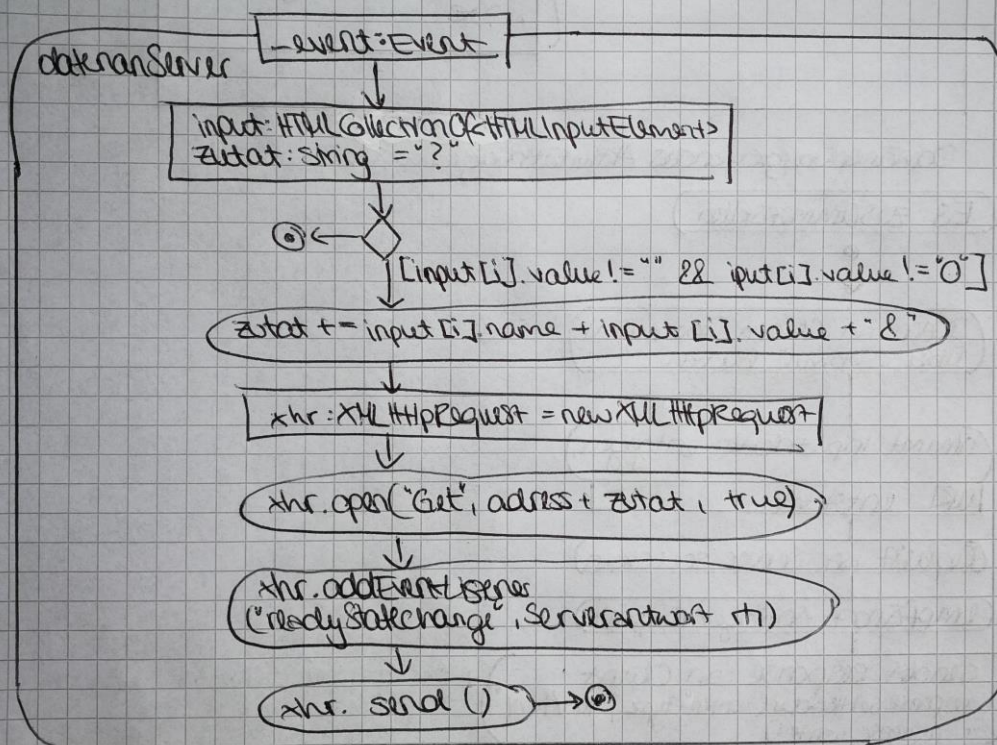 _event:Event
datenanServer
input: HTMLCollectionOf<HTMLInputElement>
zutat: string = "?"
[input[i].value != "" && iput[i].value != "0"]
zutat += input[i].name + input[i].value + "&"
xhr: XMLHttpRequest = new XMLHttpRequest
xhr.open("Get", adress + zutat, true)
xhr.addEventListener
("readyStatechange", Serverantwort
xhr. send ()